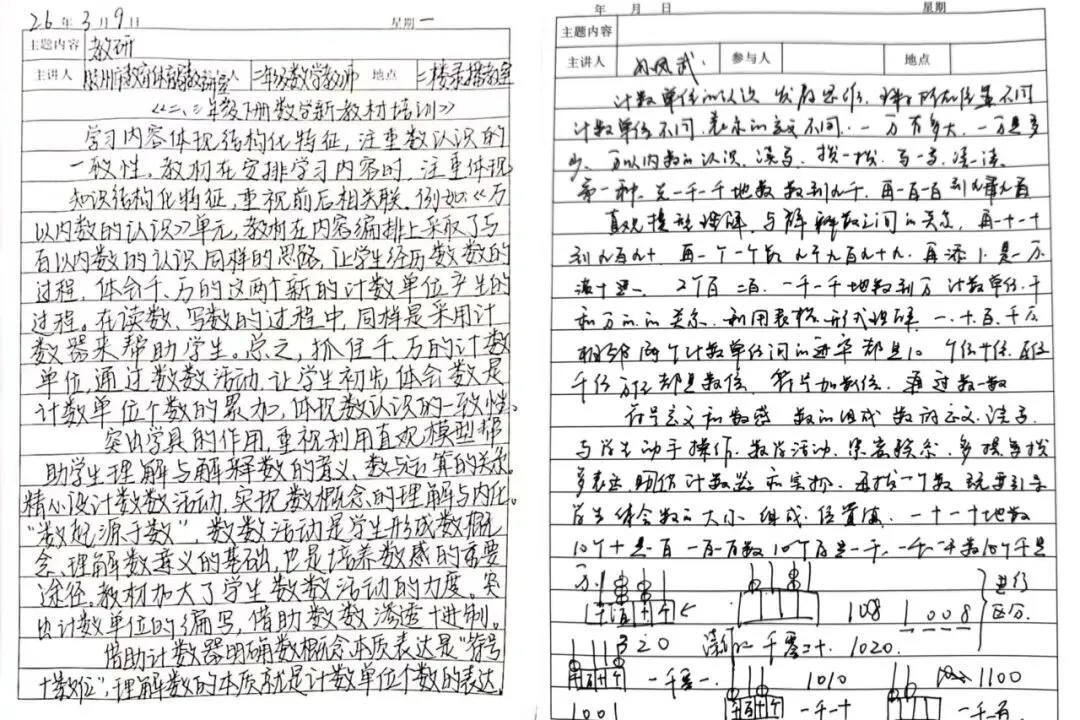 26年3月9日 星期一
主题内容 教研
主讲人 二、三年级数学教师 地点 二楼录播教室
《二、三年级下册数学新教材培训》
学习内容体现结构化特征，注重数认识的
一致性。教材在安排学习内容时，注重体现
知识结构化特征，重视前后相关联。例如：《万
以内数的认识》单元，教材在内容编排上采取了与
百以内数的认识同样的思路，让学生经历数数的
过程，体会千、万的这两个新的计数单位产生的
过程。在读数、写数的过程中，同样是采用计
数器来帮助学生。总之，抓住千、万的计数
单位，通过数数活动，让学生初步体会数是
计数单位个数的累加，体现数认识的一致性。
突出学具的作用，重视利用直观模型帮
助学生理解与解释数的意义、数与运算的关系。
精心设计数数活动，实现数概念的理解与内化。
“数起源于数”，数数活动是学生形成数概
念、理解数意义的基础，也是培养数感的重要
途径。教材加大了学生数数活动的力度。突
出计数单位的编写，借助数数渗透十进制。
借助计数器明确数概念本质表达是“符号
十数位”，理解数的本质就是计数单位个数的表达。
年 月 日 星期
主题内容
主讲人 孙凤武 参与人 地点
计数单位的认识 发展思维 所在位置不同
计数单位不同 表示的意义不同 一万有多大 一万是多
少 万以内数的认识、读写 拨一拨 写一写 读一读
第一种 先一千一千地数 数到九千 再一百一百到九千九百
直观模型理解 与解释数之间的关系 再一十一十
到九百九十 再一个一个数 九千九百九十九 再添1是一万
满十进一 2个百 二百 一千一千地数到万 计数单位 千
和万的关系 利用表格形式理解 一、十、百、千、万
相邻两个计数单位间的进率都是10 个位十位 百位
千位 万位 都是数位 符号加数位 通过数一数
符号意义和数感 数的组成 数的意义 读写
与学生动手操作 数学活动 多摸多拨
多表达 借助计数器 再拨一个数 就要引导
学生体会数的大小 组成 位置值 一十一十地数
10个十是一百 一百一百数 10个百是一千 一千一千数10个千是
万
千百十个 108 1008 进行
区分
320 读作一千零二十 1020
百十个 一千零一 1010 1100
1001 千百十个 一千一十 一千一百